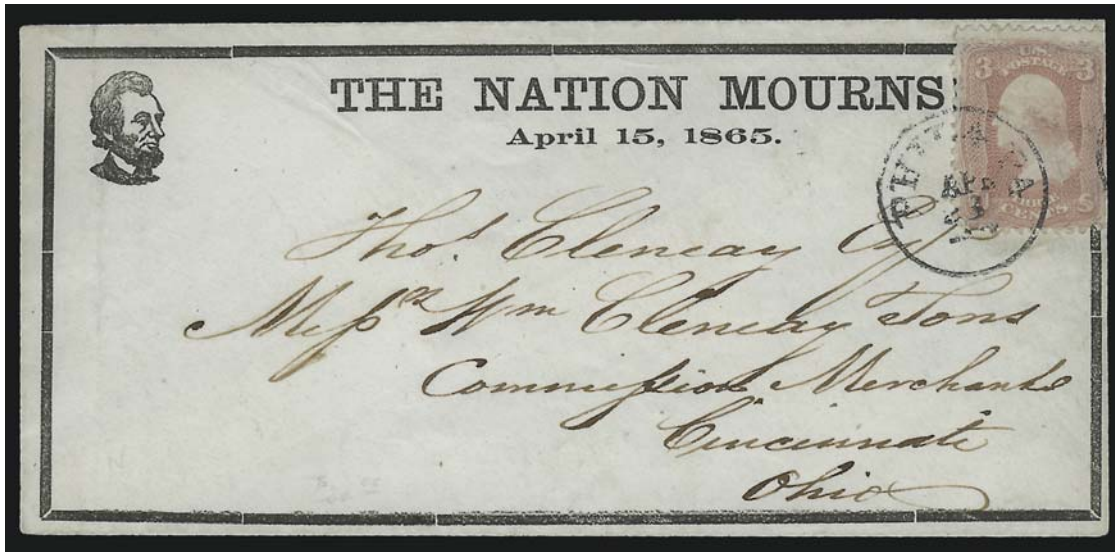 THE NATION MOURNS
April 15, 1865.
3 U.S. POSTAGE 3
CENTS
PHILA PA
APR
23
Thos. Cleneay Esq
Messrs Wm Cleneay Sons
Commission Merchants
Cincinnati
Ohio